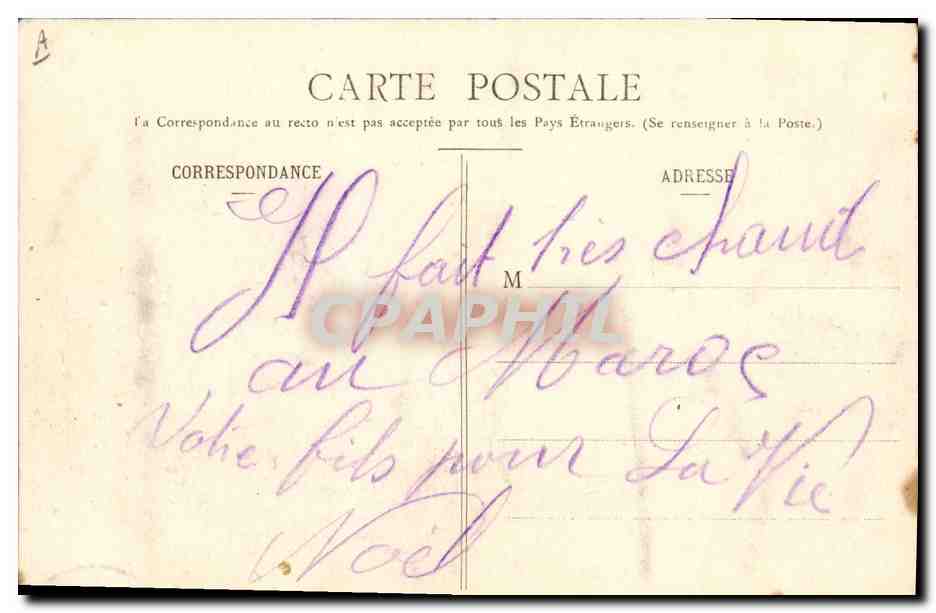 A
CARTE POSTALE
La Correspondance au recto n'est pas acceptée par tous les Pays Étrangers. (Se renseigner à la Poste.)
CORRESPONDANCE
ADRESSE
M
Il fait très chaud
au Maroc
Votre fils pour La Vie
Noël
CPAPHIL